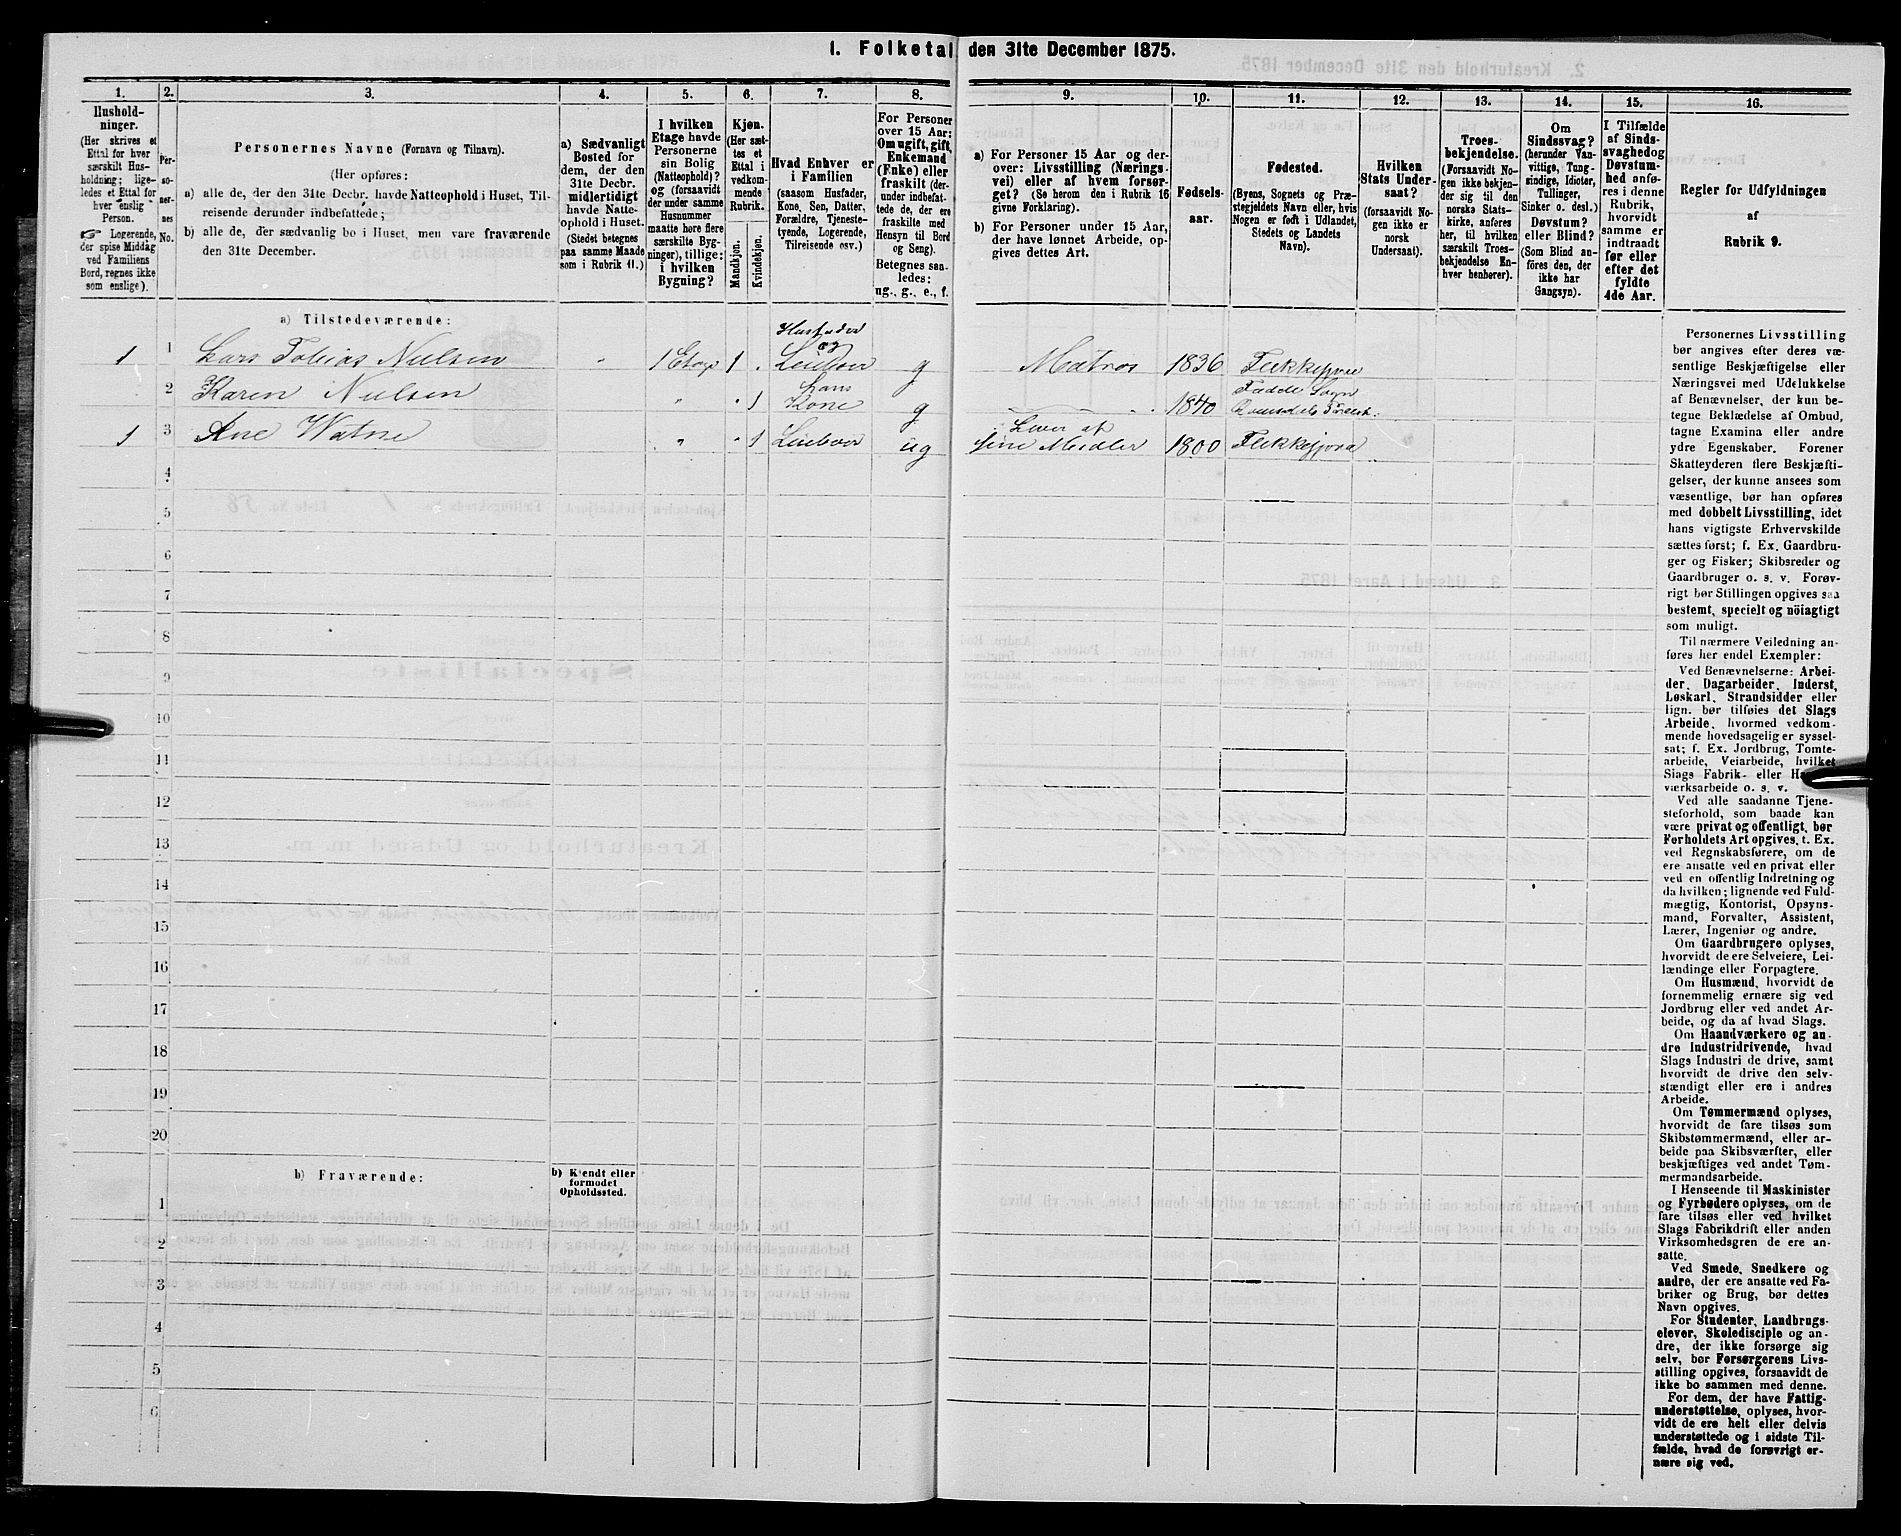 1. Folketal den 31te December 1875.
1. 2. 3. 4. 5. 6. 7. 8. 9. 10. 11. 12. 13. 14. 15. 16.
Hushold-
ninger.
(Her skrives et
Ettal for hver
særskilt Hus-
holdning; lige-
ledes et Ettal for
hver enslig
Person.
☞ Logerende,
der spise Middag
ved Familiens
Bord, regnes ikke
som enslige).
Per-
so-
ner-
nes
No.
Personernes Navne (Fornavn og Tilnavn).
(Her opføres:
a) alle de, der den 31te Decbr. havde Natteophold i Huset, Til-
reisende derunder indbefattede;
b) alle de, der sædvanlig bo i Huset, men vare fraværende
den 31te December.
a) Sædvanligt
Bosted for
dem, der den
31te Decbr.
midlertidigt
havde Natte-
ophold i Huset.
(Stedet betegnes
paa samme Maade
som i Rubrik 11.)
I hvilken
Etage havde
Personerne
sin Bolig
(Natteophold)?
og (forsaavidt
der under samme
Husnummer
maatte høre flere
særskilte Byg-
ninger), tillige:
i hvilken
Bygning?
Kjøn.
(Her sæt-
tes et
Ettal i
vedkom-
mende
Rubrik.
Mandkjøn.
Kvindekjøn.
Hvad Enhver er
i Familien
(saasom Husfader,
Kone, Søn, Datter,
Forældre, Tjeneste-
tyende, Logerende,
Tilreisende osv.)
For Personer
over 15 Aar:
Om ugift, gift,
Enkemand
(Enke) eller
fraskilt (der-
under indbefat-
tede de, der ere
fraskilte med
Hensyn til Bord
og Seng).
Betegnes saa-
ledes:
ug., g., e., f.
a) For Personer 15 Aar og der-
over: Livsstilling (Nærings-
vei) eller af hvem forsør-
get? (Se herom den i Rubrik 16
givne Forklaring).
b) For Personer under 15 Aar,
der have lønnet Arbeide, op-
gives dettes Art.
Fødsels-
aar.
Fødested.
(Byens, Sognets og Præ-
stegjeldets Navn eller, hvis
Nogen er født i Udlandet,
Stedets og Landets
Navn).
Hvilken
Stats Under-
saat?
(forsaavidt No-
gen ikke er
norsk
Undersaat).
Troes-
bekjendelse.
(Forsaavidt No-
gen ikke bekjen-
der sig til den
norske Stats-
kirke, anføres
her, til hvilken
særskilt Troes-
bekjendelse En-
hver henhører).
Om
Sindssvag?
(herunder Van-
vittige, Tung-
sindige, Idioter,
Tullinger,
Sinker o. desl.)
Døvstum?
eller Blind?
(Som Blind an-
føres den, der
ikke har
Gangsyn).
I Tilfælde
af Sinds-
svaghed og
Døvstum-
hed anfø-
res i denne
Rubrik,
hvorvidt
samme er
indtraadt
før eller
efter det
fyldte
4de Aar.
Regler for Udfyldningen
af
Rubrik 9.
a) Tilstedeværende:
1 1 Lars Tobias Nielsen " 1 Etage 1 . Husfader og Leiebor g Matros 1836 Flekkefjord
2 Karen Nielsen " " 1 hans Kone g 1840 Sogn
1 3 Ane Watne " " 1 Leiebor ug Lever af sine Midler 1800 Flekkefjord
4
5
6
7
8
9
10
11
12
13
14
15
16
17
18
19
20
b) Fraværende:
b) Kjendt eller
formodet
Opholdssted.
1
2
3
4
5
6
Personernes Livsstilling
bør angives efter deres væ-
sentlige Beskjæftigelse eller
Næringsvei med Udelukkelse
af Benævnelser, der kun be-
tegne Beklædelse af Ombud,
tagne Examina eller andre
ydre Egenskaber. Forener
Skatteyderen flere Beskjæfti-
gelser, der kunne ansees som
væsentlige, bør han opføres
med dobbelt Livsstilling, idet
hans vigtigste Erhvervskilde
sættes først; f. Ex. Gaardbru-
ger og Fisker; Skibsreder og
Gaardbruger o. s. v. Forøv-
rigt bør Stillingen opgives saa
bestemt, specielt og nöiagtigt
som muligt.
Til nærmere Veiledning an-
føres her endel Exempler:
Ved Benævnelserne: Arbei-
der, Dagarbeider, Inderst,
Løskarl, Strandsidder eller
lign. bør tilføies det Slags
Arbeide, hvormed vedkom-
mende hovedsagelig er syssel-
sat; f. Ex. Jordbrug, Tomte-
arbeide, Veiarbeide, hvilket
Slags Fabrik- eller Ha
værksarbeide o. s. v.
Ved alle saadanne Tjene-
steforhold, som baade kan
være privat og offentligt, bør
Forholdets Art opgives, t. Ex.
ved Regnskabsførere, om de
ere ansatte ved en privat eller
ved en offentlig Indretning og
da hvilken; lignende ved Fuld-
mægtig, Kontorist, Opsyns-
mand, Forvalter, Assistent,
Lærer, Ingeniør og andre.
Om Gaardbrugere oplyses,
hvorvidt de ere Selveiere, Lei-
lændinge eller Forpagtere.
Om Husmænd, hvorvidt de
fornemmelig ernære sig ved
Jordbrug eller ved andet Ar-
beide, og da af hvad Slags.
Om Haandværkere og an-
dre Industridrivende, hvad
Slags Industri de drive, samt
hvorvidt de drive den selv-
stændigt eller ere i andres
Arbeide.
Om Tømmermænd oplyses,
hvorvidt de fare tilsøs som
Skibstømmermænd, eller ar-
beide paa Skibsværfter, eller
beskjæftiges ved andet Tøm-
mermandsarbeide.
I Henseende til Maskinister
og Fyrbødere oplyses, om de
fare tilsøs eller ved hvilket
Slags Fabrikdrift eller anden
Virksomhedsgren de ere an-
satte.
Ved Smede, Snedkere og
andre, der ere ansatte ved Fa-
briker og Brug, bør dettes
Navn opgives.
For Studenter, Landbrugs-
elever, Skoledisciple og an-
dre, der ikke forsørge sig
selv, bør Forsørgerens Livs-
stilling opgives, forsaavidt de
ikke bo sammen med denne.
For dem, der have Fattig-
understøttelse, oplyses, hvor-
vidt de ere helt eller delvis
understøttede og i sidste Til-
fælde, hvad de forøvrigt er-
nære sig ved.